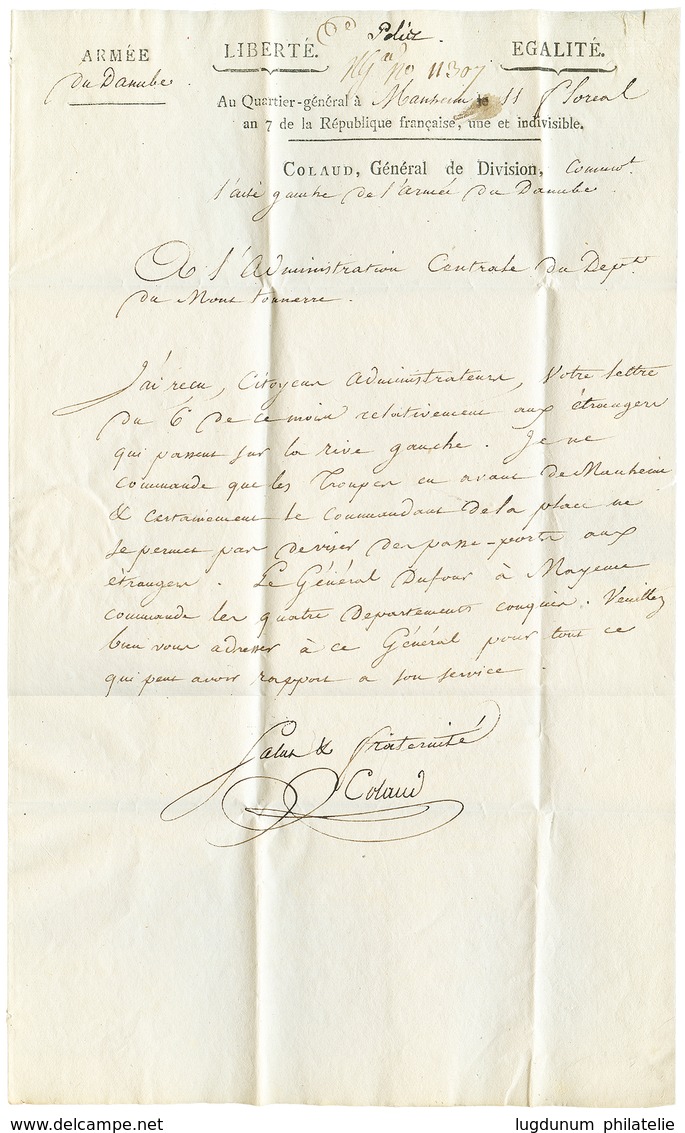 Police
ARMÉE LIBERTÉ. EGALITÉ.
du Danube
N° 11307
Au Quartier-général à Manheim le 11 floreal
an 7 de la République française, une et indivisible.
COLAUD, Général de Division, Commt.
l'aile gauche de l'Armée du Danube
A l'Administration Centrale du Dept.
du Mont tonnerre.
J'ai recu, Citoyens administrateurs, votre lettre
du 6 de ce mois relativement aux étrangers
qui passent sur la rive gauche. Je ne
commande que les Troupes en avant de Manheim
& certainement le commandant de la place ne
se permet pas de viser des passe-ports aux
étrangers. Le Général Dufour à Mayence
commande les quatre Departements conquis. Veuillez
bien vous adresser à ce Général pour tout ce
qui peut avoir rapport a son service.
Salut & fraternité
Colaud
www.delcampe.net lugdunum philatelie